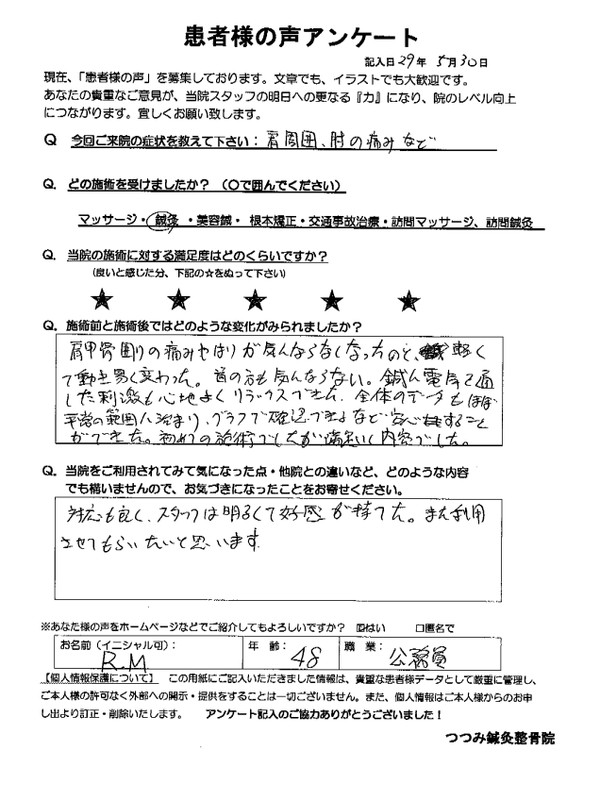 患者様の声アンケート
記入日 29年 5月30日
現在、「患者様の声」を募集しております。文章でも、イラストでも大歓迎です。
あなたの貴重なご意見が、当院スタッフの明日への更なる『力』になり、院のレベル向上
につながります。宜しくお願い致します。
Q 今回ご来院の症状を教えて下さい：肩周囲、肘の痛みなど
Q. どの施術を受けましたか？（〇で囲んでください）
マッサージ・鍼灸・美容鍼・根本矯正・交通事故治療・訪問マッサージ、訪問鍼灸
Q. 当院の施術に対する満足度はどのくらいですか？
（良いと感じた分、下記の☆をぬって下さい）
★ ★ ★ ★ ★
Q. 施術前と施術後ではどのような変化がみられましたか？
肩甲骨周りの痛みやはりが気にならなくなったのと、軽く
て動き易く変わった。首の方も気にならない。鍼に電気を通
した刺激も心地よくリラックスできた。全体のデータもほぼ
平常の範囲に治まり、グラフで確認できるなど安心すること
ができた。初めての施術でしたが満足いく内容でした。
Q. 当院をご利用されてみて気になった点・他院との違いなど、どのような内容
でも構いませんので、お気づきになったことをお寄せください。
対応も良く、スタッフは明るくて好感が持てた。また利用
させてもらいたいと思います
※あなた様の声をホームページなどでご紹介してもよろしいですか？ ☑はい □匿名で
お名前（イニシャル可）： R.M 年齢： 48 職業： 公務員
【個人情報保護について】 この用紙にご記入いただきました情報は、貴重な患者様データとして厳重に管理し、
ご本人様の許可なく外部への開示・提供をすることは一切ございません。また、個人情報はご本人様からのお申
し出より訂正・削除いたします。 アンケート記入のご協力ありがとうございました！
つつみ鍼灸整骨院